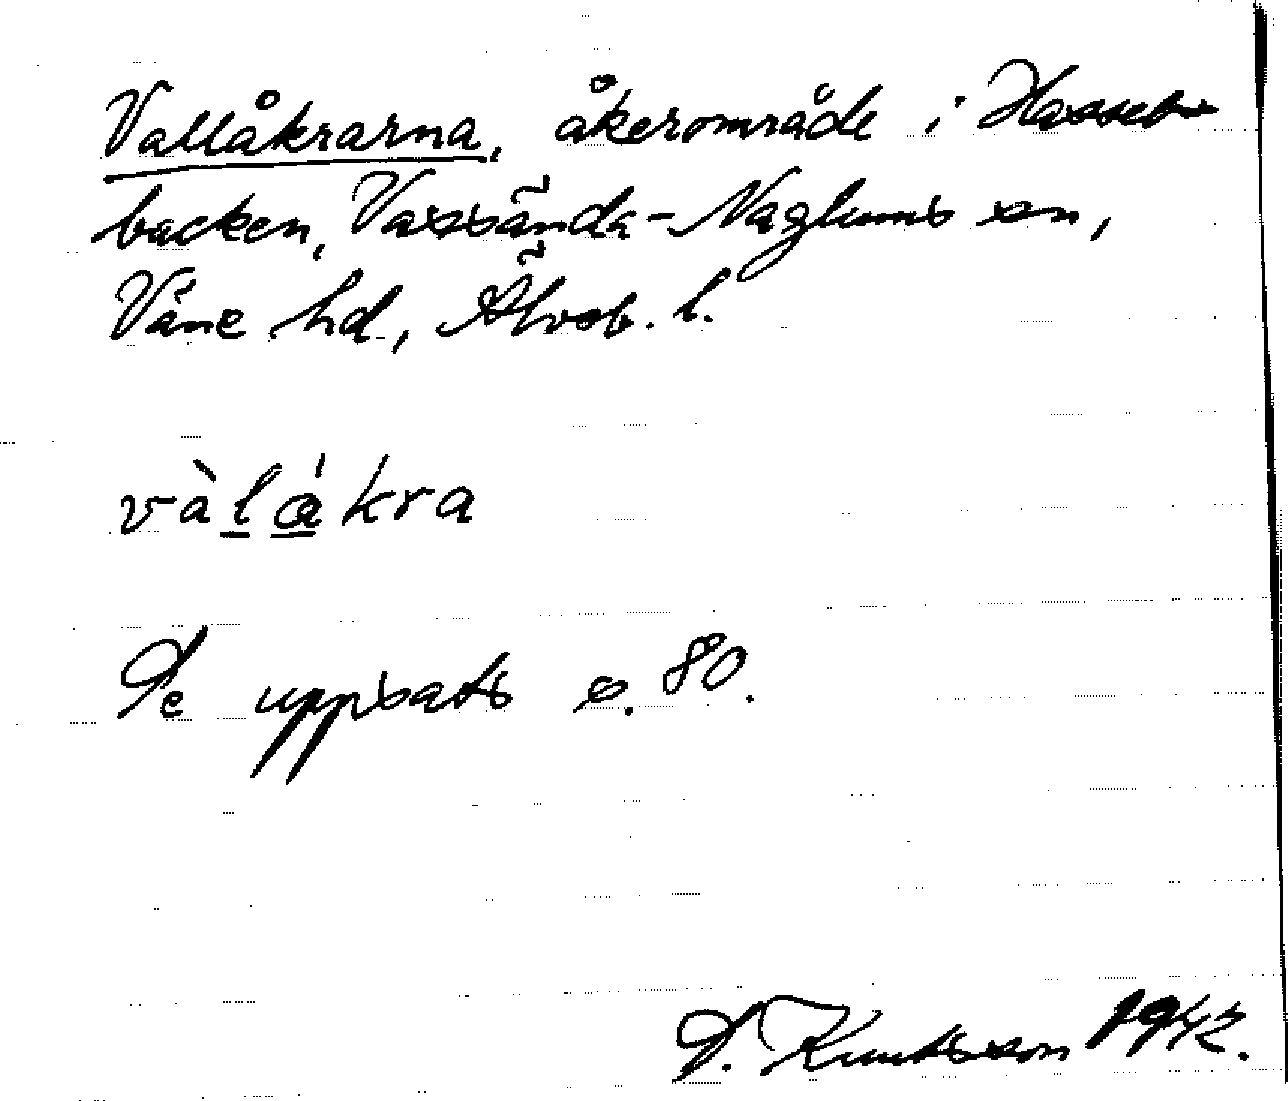 Vallåkrarna, åkerområde i Hassel-
backen, Vassända-Naglums sn,
Väne hd, Älvsb. l.
vàlåkra
Se uppsats s. 80.
S. Knutsson 1942.